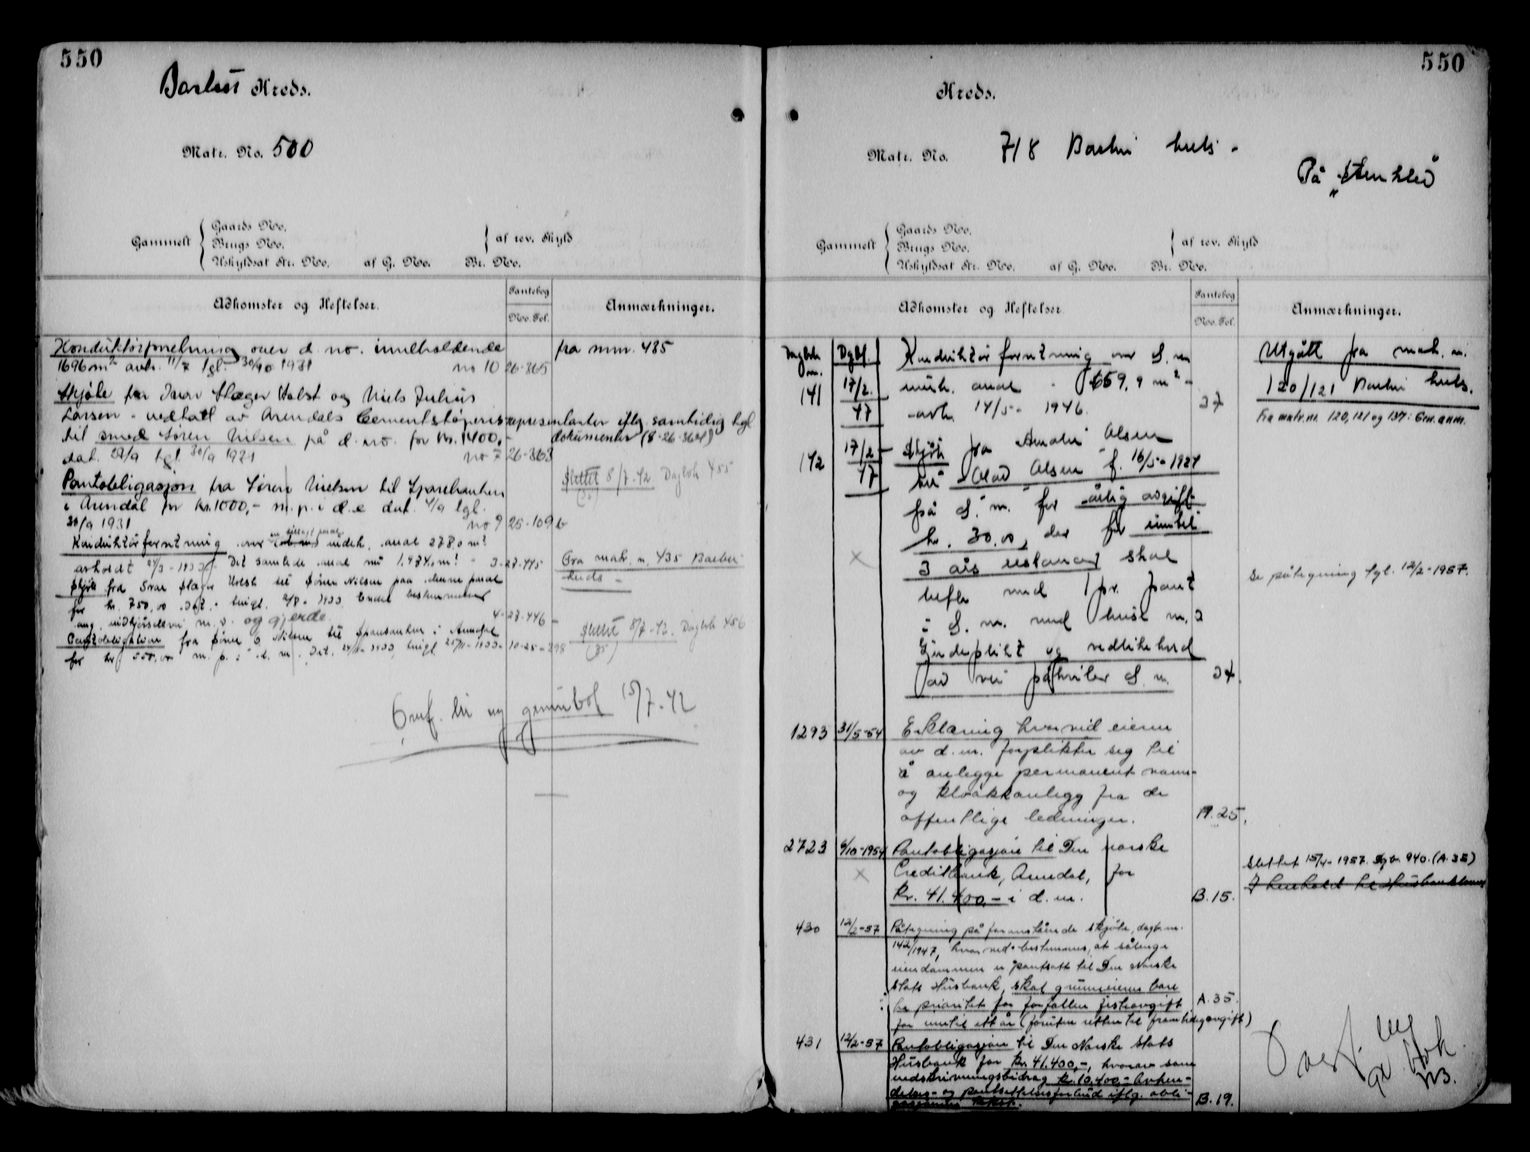 550
Barbu Kreds.
Matr. No. 500
Gammelt { Gaards No.
Brugs No.
Uskyldsat Nr. No. af G. No. Br. No.
} af rev. Skyld
Adkomster og Heftelser.
Pantebog
No. Fol.
Anmærkninger.
Konduktørforretning over d. no. indeholdende fra mnr. 435
1696 m² avh. 11/7 tgl. 30/90 1931 no 10 26-365
Skjøte fra Ivar Slæger Holst og Niels Julius
Larsen - vedtatt av Arendals Cementstøperis representanter iflg. samtidig tgl.
til smed Søren Nilsen på d. no. for kr. 1400,- dokumenter (8-26-364)
dat. 23/9 tgl. 30/9 1931 no 7 26-363
Pantobligasjon fra Søren Nielsen til Sparebanken Slettet 8/7-42 Dagbok 455
i Arendal for kr. 1000,- m. p. i d. e dat. /9 tgl.
30/9 1931 no 9 25-109 b
Konduktørforretning over indeh. areal 278.0 m²
avholdt 21/3-1933 Det samlede areal nu 1.974,0 m² 3-27-445 Gra matr. n. 435 Barbu
Skjøte fra Ivar Slæger Holst til Søren Nilsen paa denne parsel kreds
for kr. 750,00 Dat. - tingl. 2/8-1933
ang. m. v. og gjerde 4-27-446
Pantobligation fra Søren O. Nilsen til Sparebanken i Arendal Slettet 8/7-42. Dagbok 456
for kr. 550,00 m. p. i d. n. Dat. 1933, tingl. 1933 - 10-25-298
Omf. til ny grunnbok 15/7-42
550
Kreds.
Matr. No. 718 Barbu kreds -
På "Stenkleiv"
Gammelt { Gaards No.
Brugs No.
Uskyldsat Nr. No. af G. No. Br. No.
} af rev. Skyld
Adkomster og Heftelser.
Pantebog
No. Fol.
Anmærkninger.
Dagbok n. Dgbf. Konduktørforretning over d. n. Utgått fra matr. n.
141 17/2 47 inneh. areal - 659.9 m² - 120/121 Barbu kreds.
avh. 14/5-1946. 27 Fra matr. nr. 120, 121 og 137: Gml. anm.
142 17/2-47 Skjøte fra Amalie Olsen
til Olav Olsen f. 16/5-1924
på d. n. for årlig avgift
kr. 30.00, der for inntil
3 års restanse skal
hefte med 1 pr. pant
i d. n. med hus m. 2 Se påtegning tgl. 12/2-1957.
Gjerdeplikt og vedlikehold
av vei påhviler d. n. 24.
1293 31/5-54 Erklæring hvorved eieren
av d. n. forplikter seg til
å anlegge permanent vann-
og kloakkanlegg fra de
offentlige ledninger. A. 25.
2723 4/10-1954 Pantobligasjon til Den norske
Creditbank, Arendal, for Slettet 15/4-1957. Dgb. nr. 940. (A. 35)
kr. 41.400,- i d. nr. B. 15. I henhold til Husbanklånene
430 12/2-57 Påtegning på foranstående skjøte, dagb. nr.
142/1947, hvorved bestemmes, at sålenge
eiendommen er pantsatt til Den Norske
Stats Husbank, skal grunneieren bare
ha prioritet for forfallen festeavgift A. 35.
for inntil ett år (foruten retten til framtidig avgift)
431 12/2-57 Pantobligasjon til Den Norske Stats
Husbank for kr. 41.400,-, hvorav som
nedskrivningsbidrag kr. 10.400,- Avhen-
delses- og pantsettelsesforbud iflg. obli-
B. 19.
Overf. ny
gr. bok